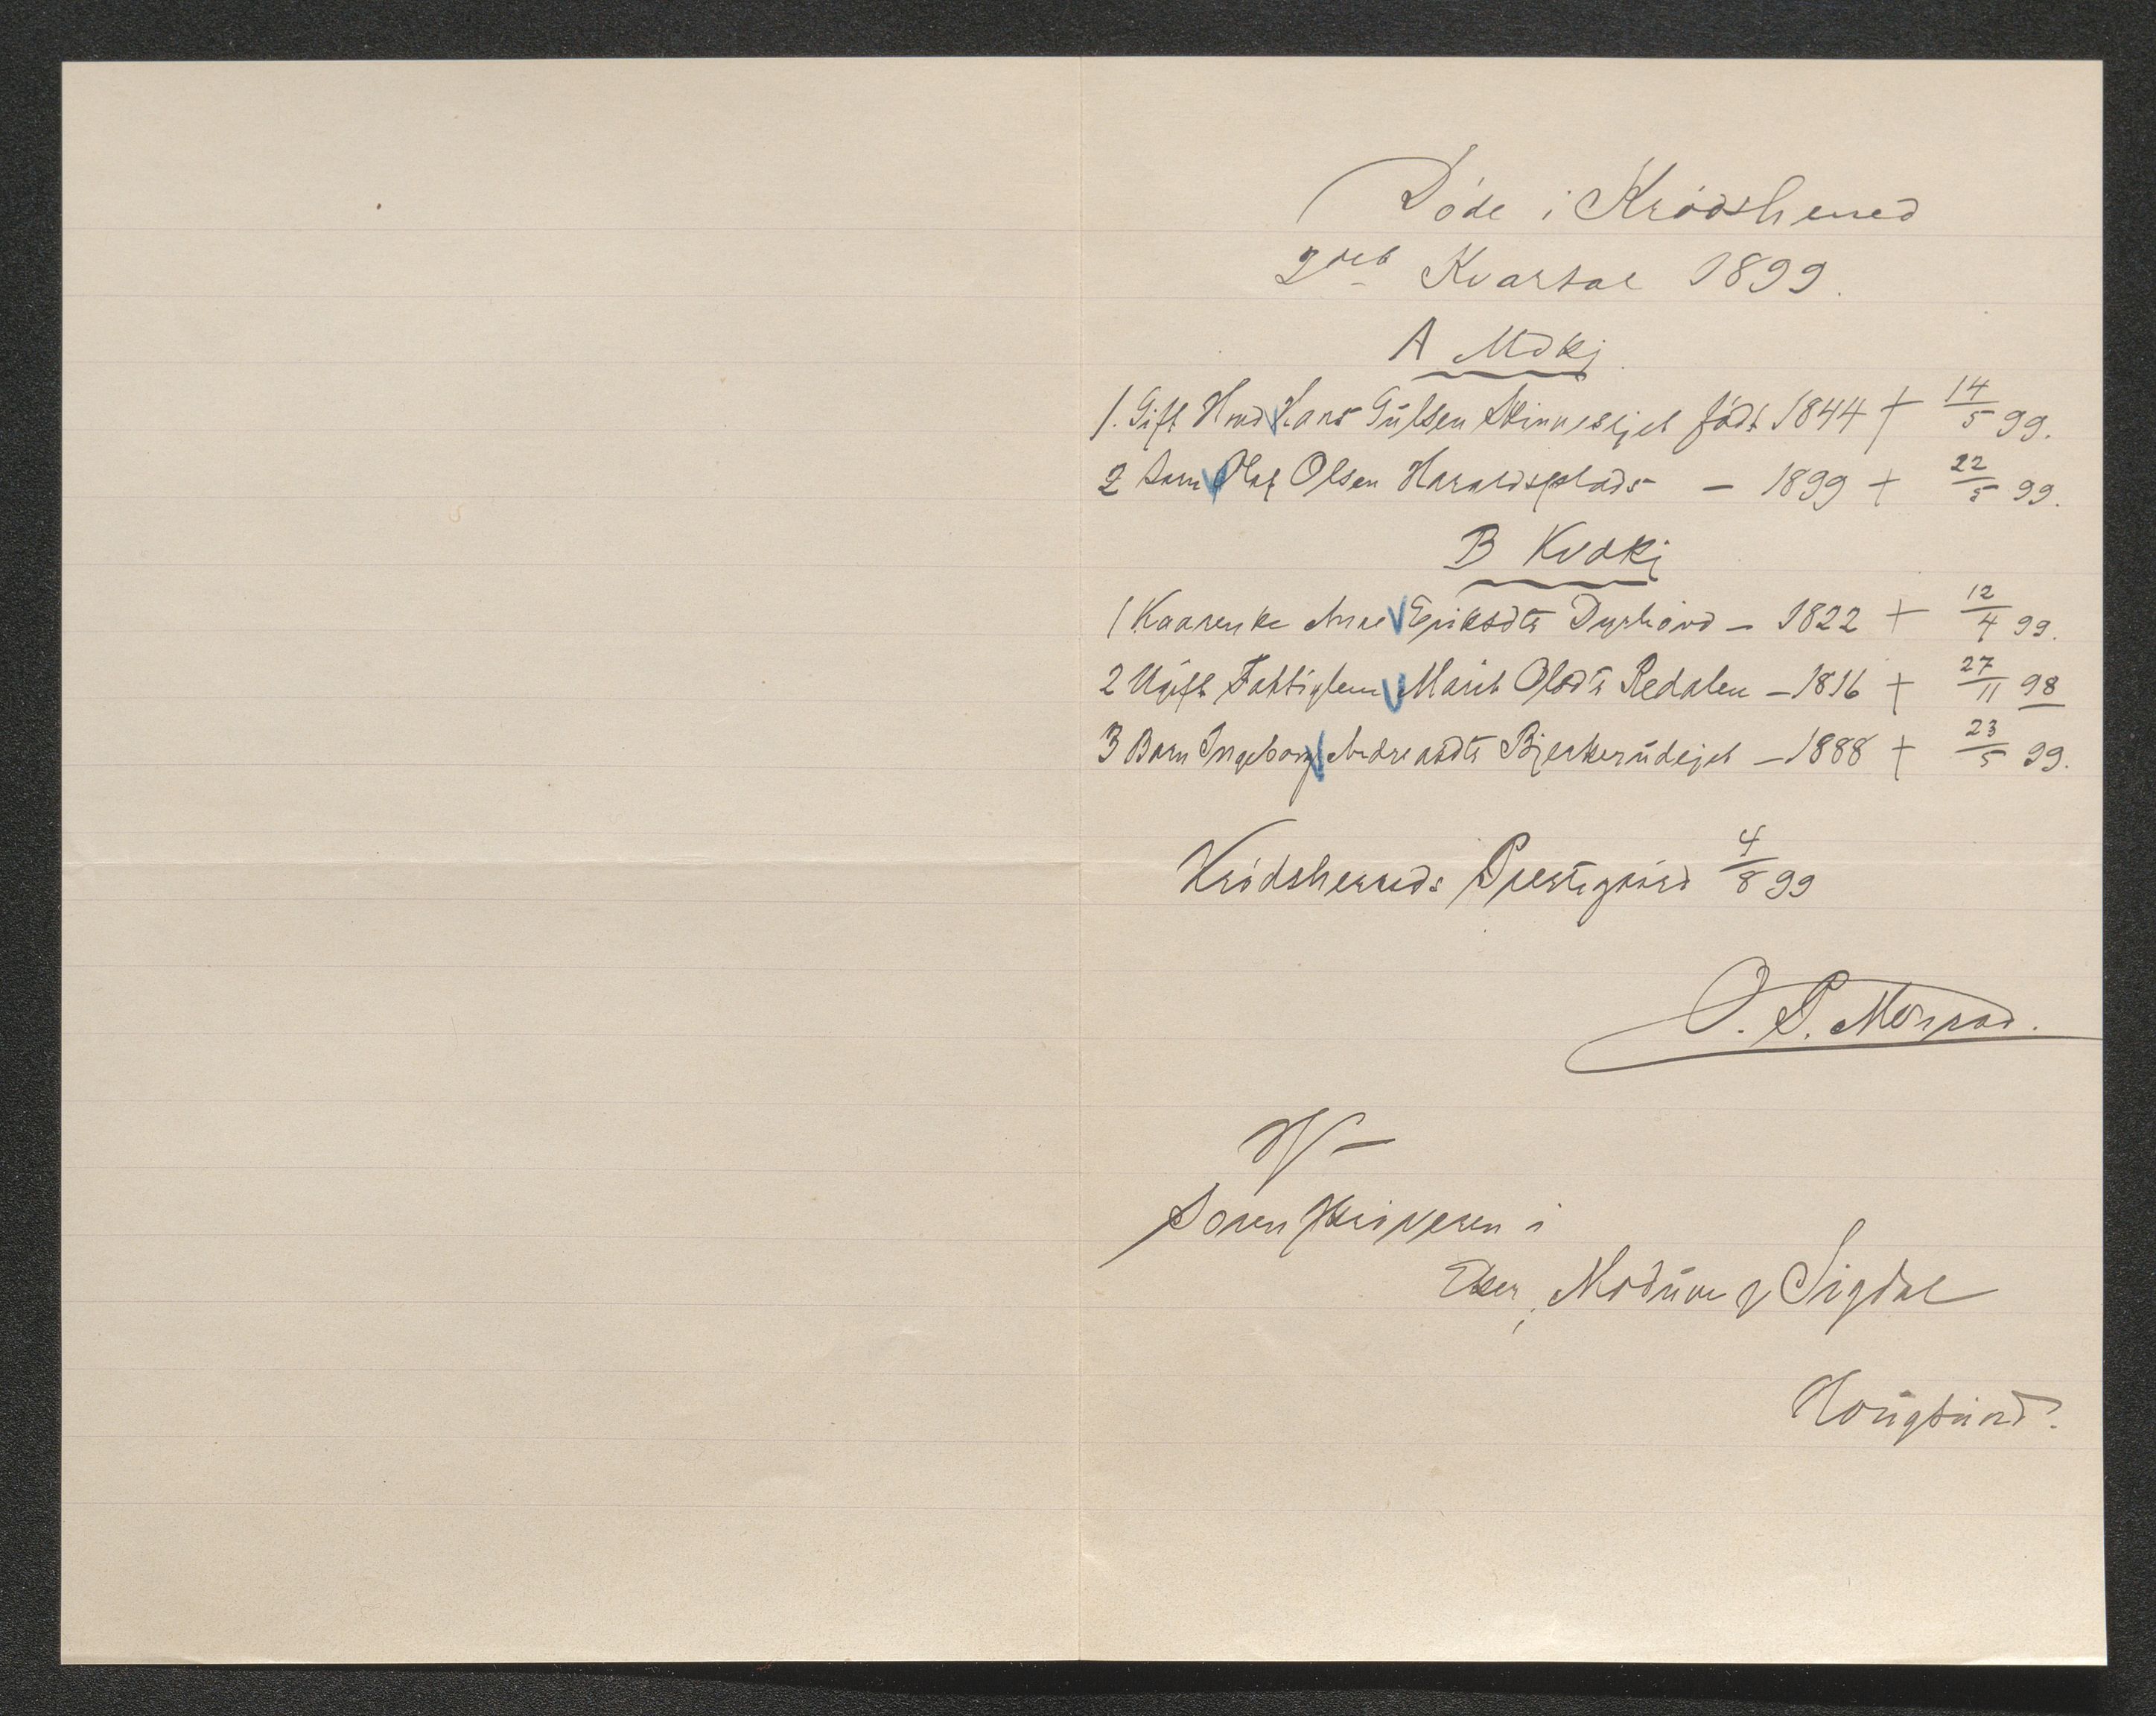 Døde i Krødsherred
2det Kvartal 1899.
A Mdkj
1. Gift Hmd Hans Gulsen Skinnesejet født 1844 + 14/5 99.
2 Barn Olaf Olsen Haraldsplads – 1899 + 22/5 99.
B Kvdkj
1 Kaarenke Anne Eriksdtr – 1822 + 12/4 99.
2 Ugift Fattiglem Marit Olsdtr Redalen – 1816 + 27/11 98
3 Barn Ingeborg Andreasdtr Bjerkerudejet – 1888 + 23/5 99.
Krødsherreds Prestegaard 4/8 99
O. P. Monrad.
Sorenskriveren i
Eker, Modum & Sigdal
Hougsund.